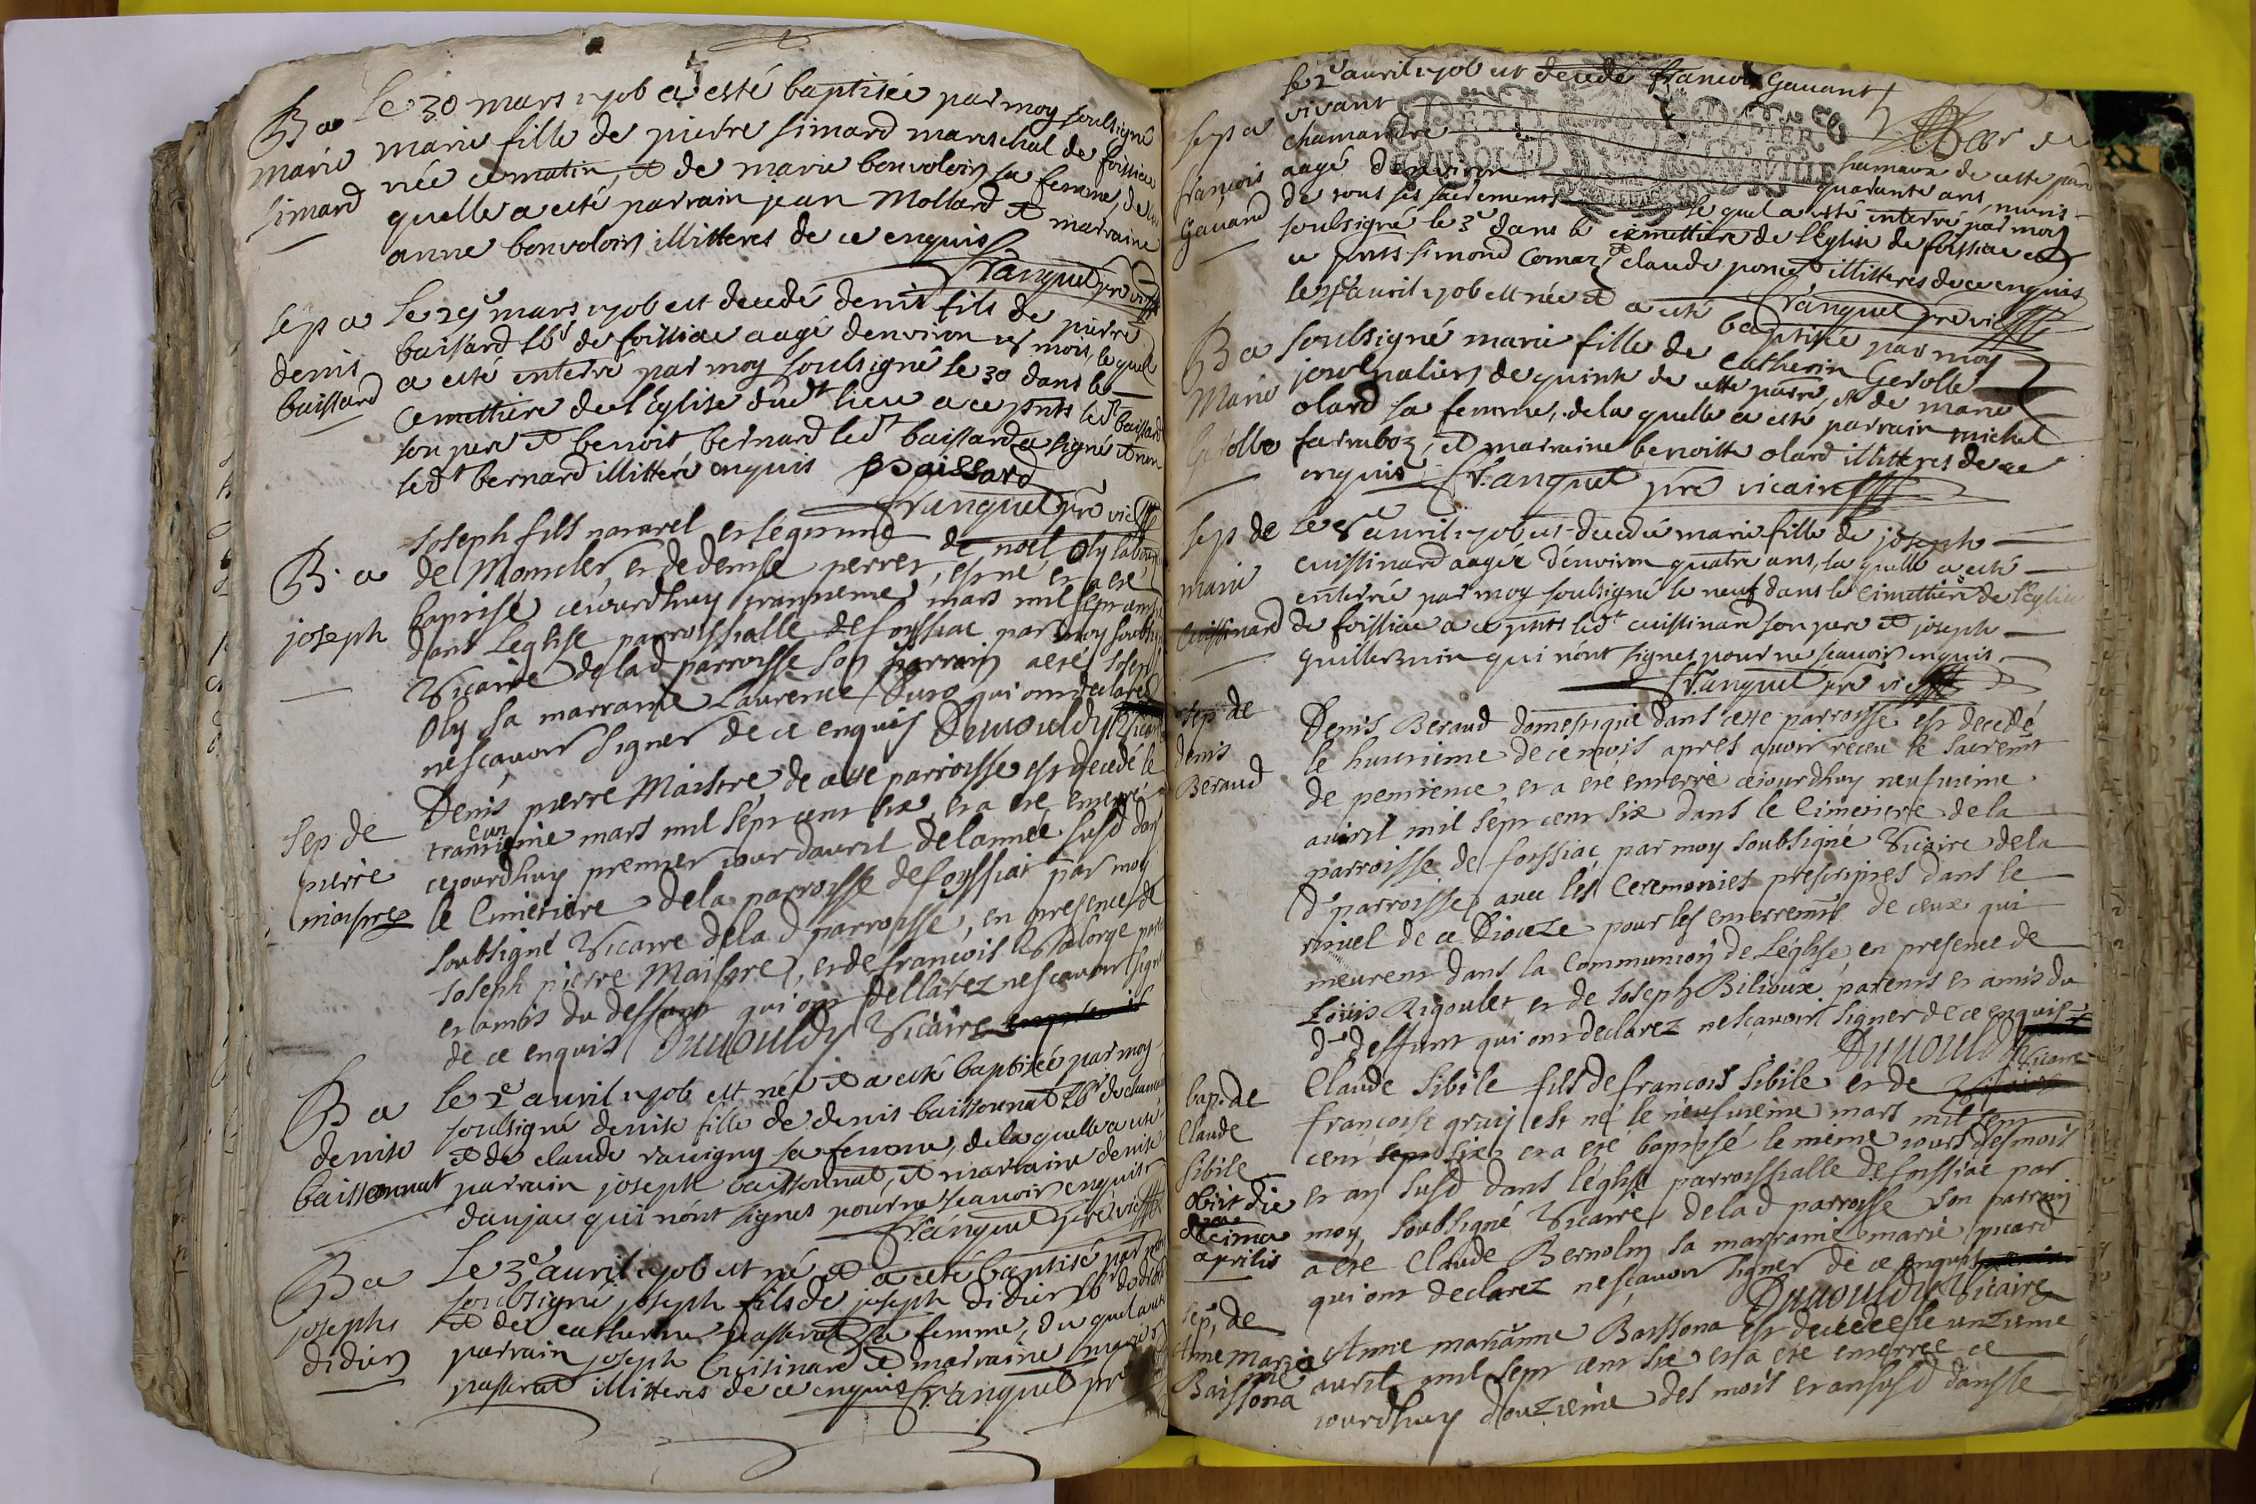 Ba
marie
simard
Le 30 mars 1706 a esté baptisée par moy soulsigné
marie fille de pierre simard mareschal de foissia
née ce matin, et de marie bonvoloin sa femme, de la
quelle a esté parrain jean Mollard et marraine
anne bonvoloin illitteres de ce enquis
Franquet pre vic
sep a
denis
baissard
Le 29e mars 1706 est decedé denis fils de pierre
baissard lbr de foissia aagé denviron mois, lequel
a esté enterré par moy soulsigné le 30 dans le
cemettiere de l'Eglise dudt lieu a ce pnts ledt baissard
son pere et benoit bernard ledt baissard a signé et non
ledt bernard illitteré enquis Baissard
Franquet pre vic
B. a
joseph
Joseph fils naturel et legitime de noel Oly labour
de Moncler, et de denise perret, est né et a esté
baptisé cejourdhuy trantieme mars mil sept cent six
dans Leglise parroissialle de foissiac par moy soubsigné
Vicaire de lad parroisse son parrain a eté Joseph
Oly sa marraine Laurence qui ont declarez
nescavoir signer de ce enquis Dunouldy Vicaire
sep de
pierre
maistre
Denis pierre Maistre de cette parroisse est decedé le
trantieme mars mil sept cent six, et a eté enterré
cejourdhuy premier jour d'avril de l'année susd dans
le Cimetiere de la parroisse de foyssiat par moy
soubsigné Vicaire de la d parroisse, en presence de
Joseph pierre Maistre, et de francois
et amis du deffunt qui ont dellarez nescavoir signer
de ce enquis Dunouldy Vicaire
Ba
denise
baissonnat
Le 2e avril 1706 est née et a esté baptisée par moy
soulsigné denise fille de denis baissonnat lbr de chama
et de claude ravigny sa femme, de la quelle a esté
parrain joseph baissonnat, et marraine denise
danjac qui n'ont signés pour ne scavoir enquis
Franquet pre vic
Ba
joseph
didier
Le 3e avril 1706 est né et a esté baptisé par moy
soulsigné joseph fils de joseph didier lbr de
et de catherine passerat sa femme, du quel a esté
parrain joseph Cuisinard et marraine marie
passerat illitteres de ce enquis Franquet pre
sep a
francois
Gavand
le 2e avril 1706 est decedé francois Gavant
vivant
chamandré hameau de cette parr
aagé denviron quarante ans, munis
de tout ses sacrements lequel a esté enterré par moy
soulsigné le 3e dans le cimettiere de l'Eglise de foissia
a ce pnts simond Comaz, et claude poncet illitteres de ce enquis
Franquet pre vic
Ba
Marie
Gerolle
le avril 1706 est née et a esté baptisée par moy
soulsigné marie fille de Catherin Gerolle
journalier de quinte de cette parr, et de marie
olard sa femme, de la quelle a esté parrain michel
farraboz, et marraine benoitte olard illitteres de ce
enquis Franquet pre vicaire
sep de
marie
Cuissinard
Le 8e avril 1706 est decedée marie fille de joseph
cuissinard aagée denviron quatre ans, la quelle a esté
enterrée par moy soulsigné le neuf dans le Cimettiere de l'Eglise
de foissiac a ce pnts ledt cuissinard son pere et joseph
guillermin qui n'ont signes pour ne scavoir enquis
Franquet pre vic
sep de
denis
Beraud
Denis Beraud domestique dans cette parroisse est decedé
le huictieme de ce mois apres avoir receu le sacremt
de penitence, et a eté enterré cejourdhuy neufvieme
avril mil sept cent six dans le Cimetiere de la
parroisse de foissiac par moy soubsigné Vicaire de la
de parroisse avec les Ceremonies prescriptes dans le
rituel de ce Dioceze pour les enterremts de ceux qui
meurent dans la Communion de L'eglise, en presence de
Louis Rigoulet et de Joseph Bilioux parents et amis du
d deffunt qui ont declarez nescavoir signer de ce enquis
Dunouldy Vicaire
bap. de
Claude
Sibile
obiit die
decima
aprilis
Claude Sibile fils de francois Sibile et de
francoise gruy est né le neufvieme mars mil sept
cent six et a eté baptisé le mème jour des mois
et an susd dans léglise parroissialle de foissiac par
moy soubsigné Vicaire de la d parroisse son parrain
a eté Claude Bernolin sa marraine marie picard
qui ont declarez nescavoir signer de ce enquis
Dunouldy Vicaire
sep, de
Anne Marie
Baissona
Anne marianne Baissona est decedée le unzieme
avril mil sept cent six et a eté enterrée ce
jourdhuy douzieme des mois et an susd dans le